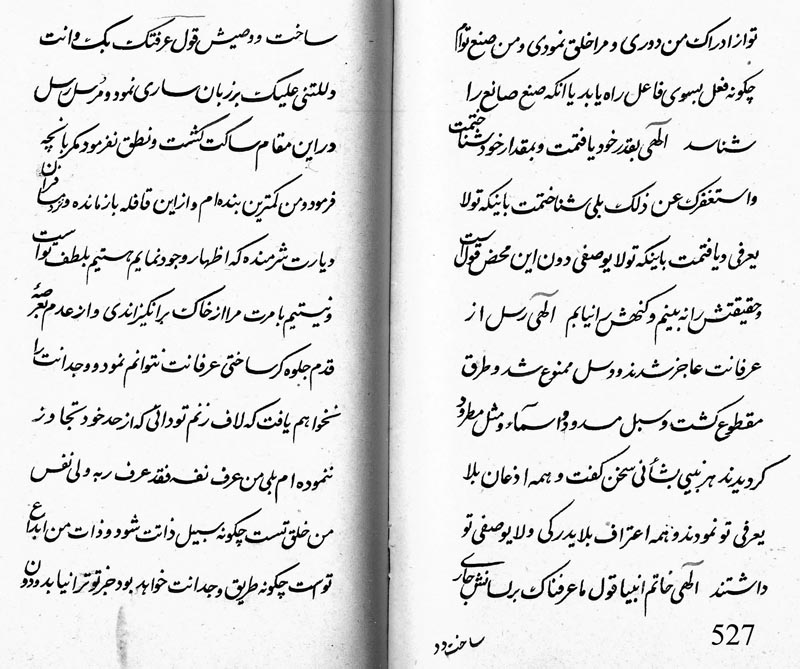 تو از ادراک من دوری و مرا خلق نمودی و من صنع توام
چگونه فعل بسوی فاعل راه یابد یا انکه صنع صانع را
شناسد الهی بقدر خود یافتمت و بمقدار خود شناختمت
و استغفرک عن ذلک بلی شناختمت باینکه تو لا
یعرفی و یافتمت باینکه تو لا یوصفی دون این محض قول است
و حقیقتش را نه بینم و کنهش را نیابم الهی رسل از
عرفانت عاجز شدند و دسل ممنوع شد و طرق
مقطوع کشت و سبل مسدود و اسماء و مثل مطرود
کردیدند هر نبیی بشأنی سخن کفت و همه اذعان بلا
یعرفی تو نمودند و همه اعتراف بلا یدرکی و لا یوصفی تو
داشتند الهی خاتم انبیا قول ما عرفناک بر لسانش جاری
527
ساخت و و
ساخت و وصیش قول عرفتک بک و انت
دللتنی علیک بر زبان ساری نمود و مرسل رسل
در این مقام ساکت کشت و نطق نفرمود مکر بانچه
فرمود و من کمترین بنده ام و از این قافله باز مانده و در مسافران
دیارت شرمنده که اظهار وجود نمایم هستیم بلطف تو است
و نیستیم بامرت مرا از خاک برانکیزاندی و از عدم بعرصهٔ
قدم جلوه کر ساختی عرفانت نتوانم نمود و وجدانت را
نخواهم یافت که لاف زنم تو دانی که از حد خود تجاوز
ننموده ام بلی من عرف نفسه فقد عرف ربه ولی نفس
من خلق تست چکونه سبیل ذاتت شود و ذات من ابداع
توست چکونه طریق وجدانت خواهد بود جز تو ترا نیابد و دون